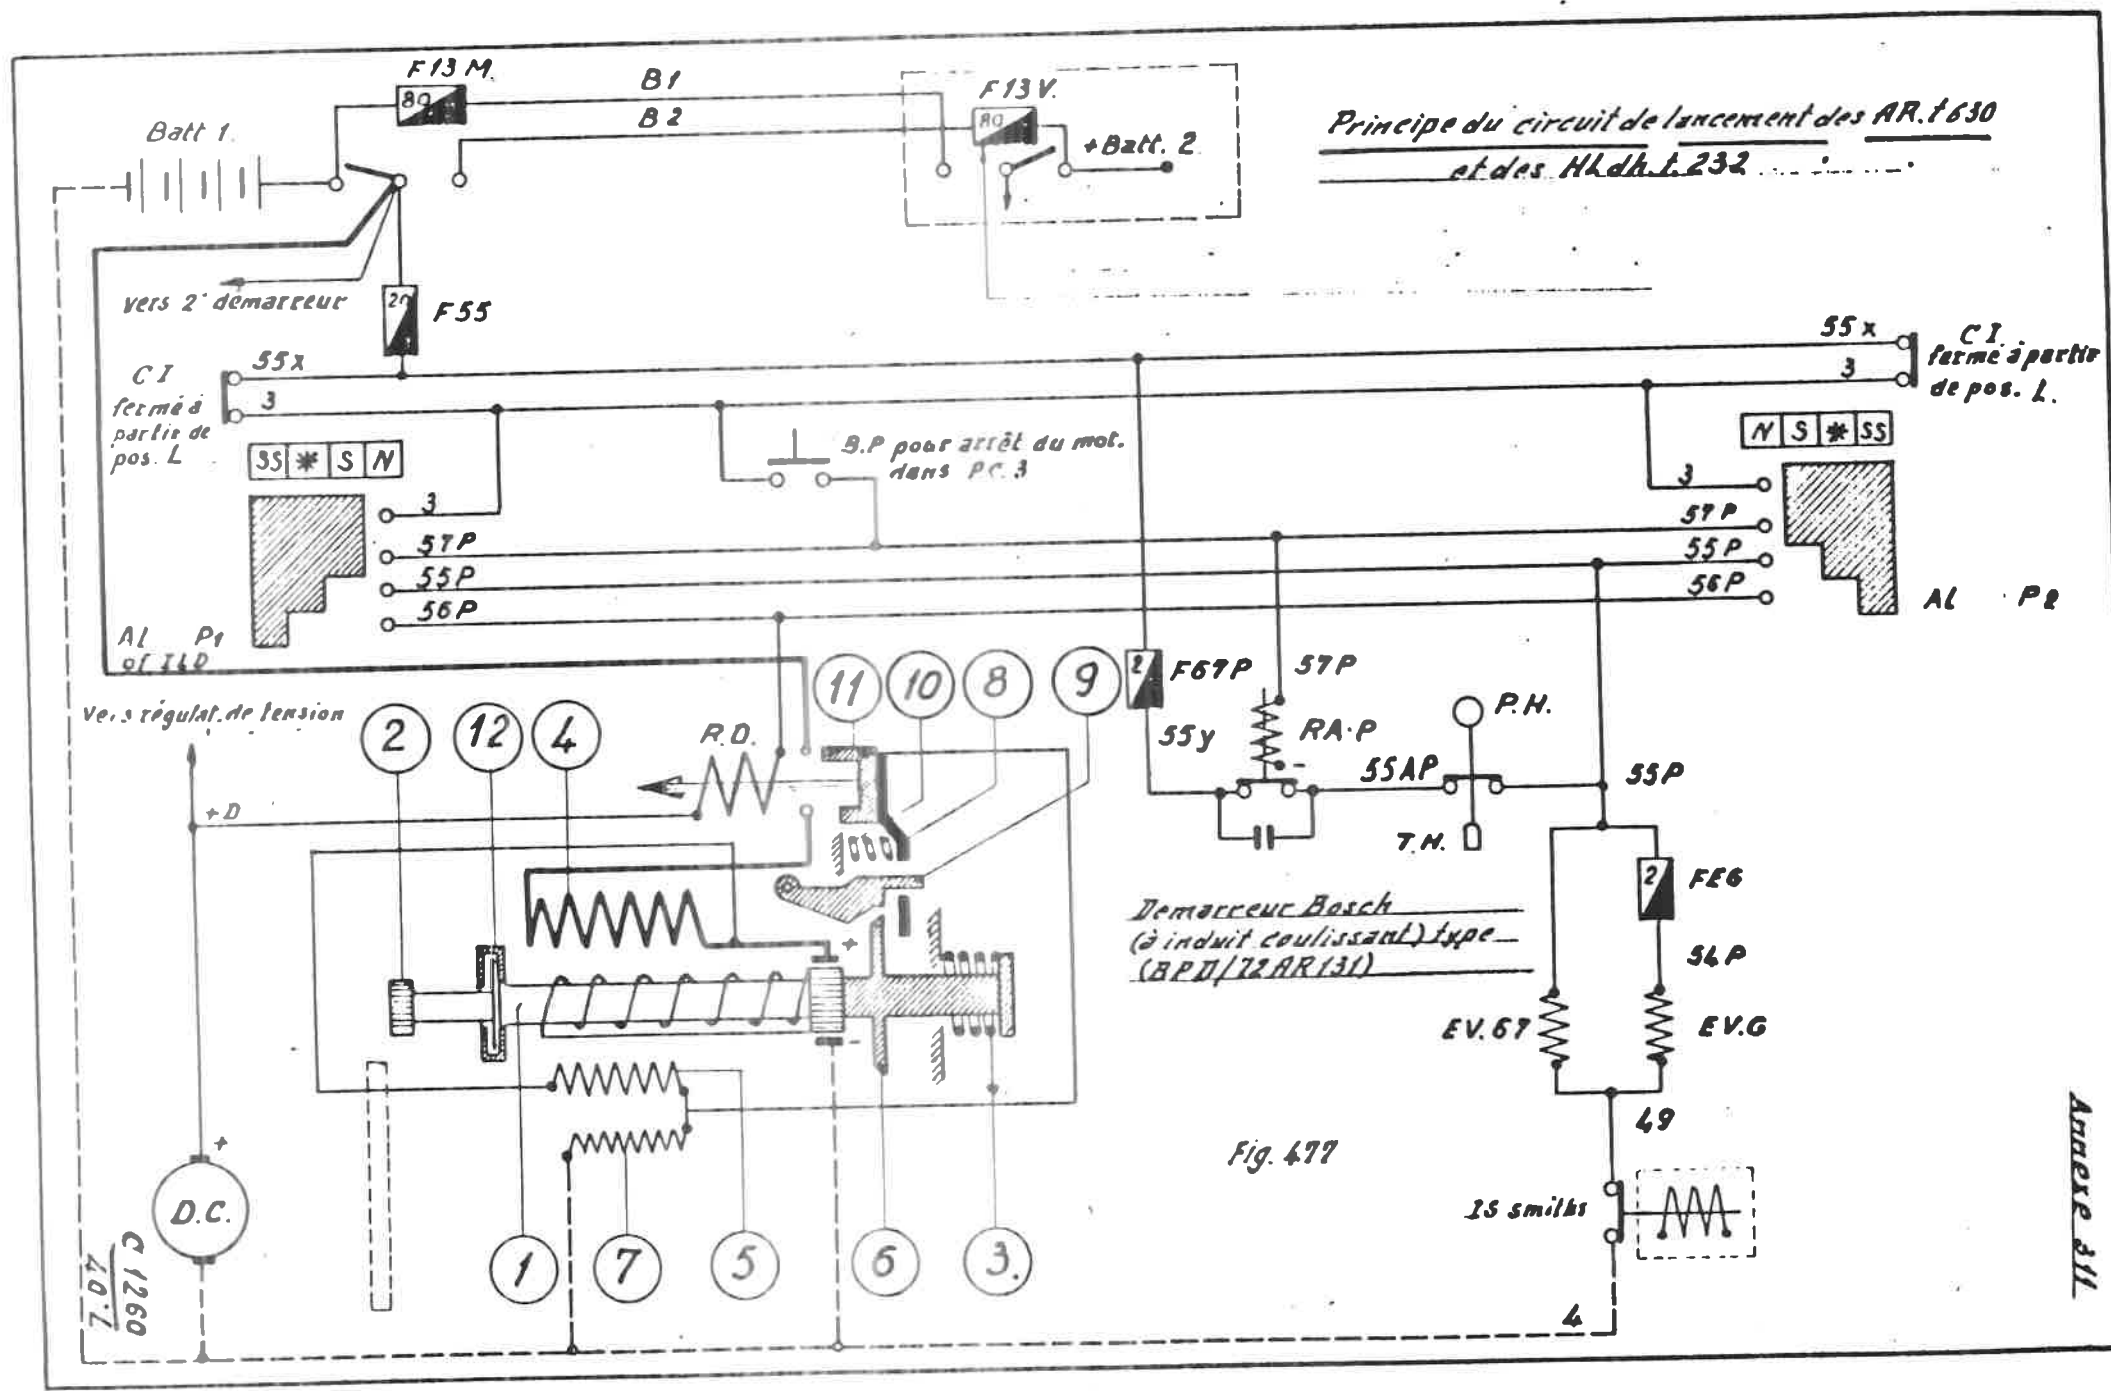 F13M.
80
B1
B2
F13V.
80
+Batt. 2
Batt 1.
Principe du circuit de lancement des AR.t630
et des HLdh.t.232
vers 2ᵉ démarreur
20
F55
CI
fermé à
partir de
pos. L
55x
3
55x
3
CI.
fermé à partir
de pos. L.
SS * S N
N S * SS
B.P pour arrêt du mot.
dans P.C.3
3
57P
55P
56P
3
57P
55P
56P
AL P1
AL P2
Vers régulat. de tension
2
12
4
R.D.
11
10
8
9
2
F67P
57P
RA.P
-
55y
55AP
P.H.
T.H.
55P
+D
2
FEG
54P
Démarreur Bosch
(à induit coulissant) type
(BPD/72AR131)
+
-
EV.67
EV.G
49
Fig. 477
IS smiths
4
+
D.C.
1
7
5
6
3.
C 1260
7.07
Annexe 311